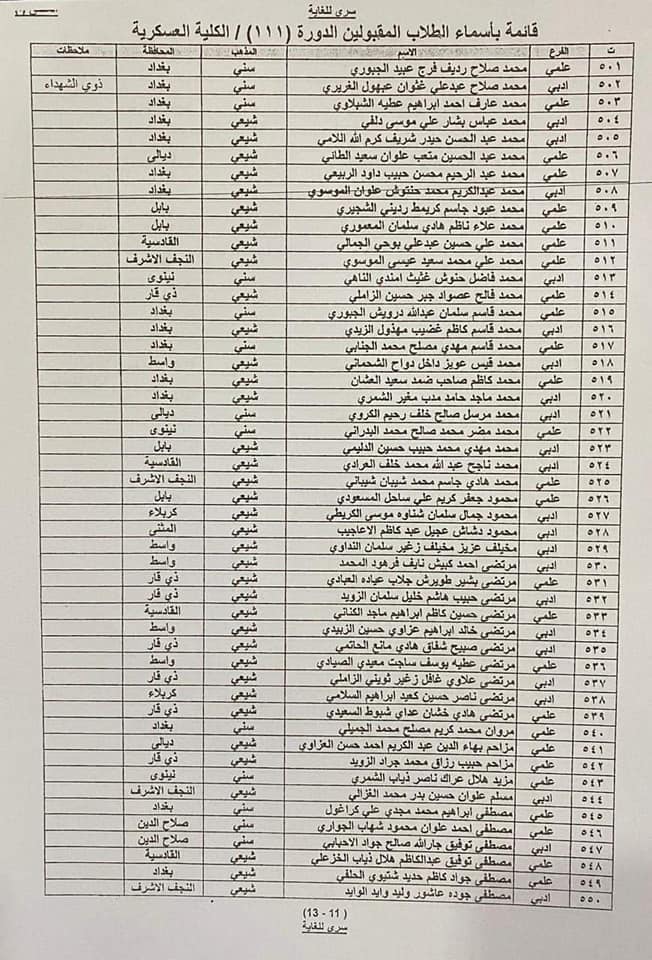 سري للغاية
قائمة بأسماء الطلاب المقبولين الدورة (١١١) / الكلية العسكرية
ت الفرع الاسم المذهب المحافظة ملاحظات
٥٠١ علمي محمد صلاح رديف فرج عبيد الجبوري سني بغداد
٥٠٢ ادبي محمد صلاح عبدعلي غثوان عبهول الغريري سني بغداد ذوي الشهداء
٥٠٣ علمي محمد عارف احمد ابراهيم عطيه الشبلاوي شيعي بغداد
٥٠٤ ادبي محمد عباس بشار علي موسى دلفي شيعي بغداد
٥٠٥ ادبي محمد عبد الحسن حيدر شريف كرم الله اللامي شيعي بغداد
٥٠٦ علمي محمد عبد الحسين متعب علوان سعيد الطائي شيعي ديالى
٥٠٧ علمي محمد عبد الرحيم محسن حبيب داود الربيعي شيعي بغداد
٥٠٨ ادبي محمد عبدالكريم محمد حنتوش علوان الموسوي شيعي بغداد
٥٠٩ علمي محمد عبود جاسم كريمط رديني الشجيري شيعي بابل
٥١٠ علمي محمد علاء ناظم هادي سلمان المعموري شيعي بابل
٥١١ علمي محمد علي حسين عبدعلي بوحي الجمالي شيعي القادسية
٥١٢ علمي محمد علي محمد سعيد عيسى الموسوي شيعي النجف الاشرف
٥١٣ ادبي محمد فاضل حنوش غثيث امندي الناهي سني نينوى
٥١٤ علمي محمد فالح عصواد جبر حسين الزاملي شيعي ذي قار
٥١٥ علمي محمد قاسم سلمان عبدالله درويش الجبوري سني بغداد
٥١٦ ادبي محمد قاسم كاظم غضيب مهذول الزيدي شيعي بغداد
٥١٧ علمي محمد قاسم مهدي مصلح محمد الجنابي سني بغداد
٥١٨ ادبي محمد قيس عويز داخل دواح الشحماني شيعي واسط
٥١٩ علمي محمد كاظم صاحب ضمد سعيد العشان شيعي بغداد
٥٢٠ ادبي محمد ماجد حامد مدب مغير الشمري شيعي بغداد
٥٢١ ادبي محمد مرسل صالح خلف رحيم الكروي سني ديالى
٥٢٢ علمي محمد مضر محمد صالح محمد البدراني سني نينوى
٥٢٣ ادبي محمد مهدي محمد حبيب حسين الدليمي شيعي بابل
٥٢٤ ادبي محمد ناجح عبد الله محمد خلف العرادي شيعي القادسية
٥٢٥ علمي محمد هادي جاسم محمد شيبان شيباني شيعي النجف الاشرف
٥٢٦ علمي محمود جعفر كريم علي ساحل المسعودي شيعي بابل
٥٢٧ ادبي محمود جمال سلمان شناوه موسى الكريطي شيعي كربلاء
٥٢٨ ادبي محمود دشاش عجيل عبد كاظم الاعاجيب شيعي المثنى
٥٢٩ ادبي مخيلف عزيز مخيلف زغير سلمان النداوي شيعي واسط
٥٣٠ ادبي مرتضى احمد كبيش نايف فرهود المحمد شيعي واسط
٥٣١ علمي مرتضى بشير طويرش جلاب عياده العبادي شيعي ذي قار
٥٣٢ ادبي مرتضى حبيب هاشم خليل سلمان الزويد شيعي ذي قار
٥٣٣ علمي مرتضى حسين كاظم ابراهيم ماجد الكناني شيعي القادسية
٥٣٤ ادبي مرتضى خالد ابراهيم عزاوي حسين الزبيدي شيعي واسط
٥٣٥ ادبي مرتضى صبيح شفاق هادي مانع الحاتمي شيعي ذي قار
٥٣٦ علمي مرتضى عطيه يوسف ساجت معيدي الصيادي شيعي واسط
٥٣٧ ادبي مرتضى علاوي غافل زغير ثويني الزاملي شيعي ذي قار
٥٣٨ ادبي مرتضى ناصر حسين كعيد ابراهيم السلامي شيعي كربلاء
٥٣٩ علمي مرتضى هادي خشان عداي شبوط السعيدي شيعي ذي قار
٥٤٠ علمي مروان محمد كريم مصلح محمد الجميلي سني بغداد
٥٤١ علمي مزاحم بهاء الدين عبد الكريم احمد حسن العزاوي شيعي ديالى
٥٤٢ علمي مزاحم حبيب رزاق محمد جراد الزويد شيعي ذي قار
٥٤٣ علمي مزيد هلال عراك ناصر ذياب الشمري سني نينوى
٥٤٤ ادبي مسلم علوان حسين بدر محمد الغزالي شيعي النجف الاشرف
٥٤٥ علمي مصطفى ابراهيم محمد مجدي علي كراغول سني بغداد
٥٤٦ علمي مصطفى احمد علوان محمود شهاب الجواري سني صلاح الدين
٥٤٧ ادبي مصطفى توفيق جارالله صالح جواد الاحبابي سني صلاح الدين
٥٤٨ علمي مصطفى توفيق عبدالكاظم هلال ذياب الخزعلي شيعي القادسية
٥٤٩ علمي مصطفى جواد كاظم حديد شتيوي الحلفي شيعي بغداد
٥٥٠ ادبي مصطفى جوده عاشور وليد وايد الوايد شيعي النجف الاشرف
(13 - 11)
سري للغاية